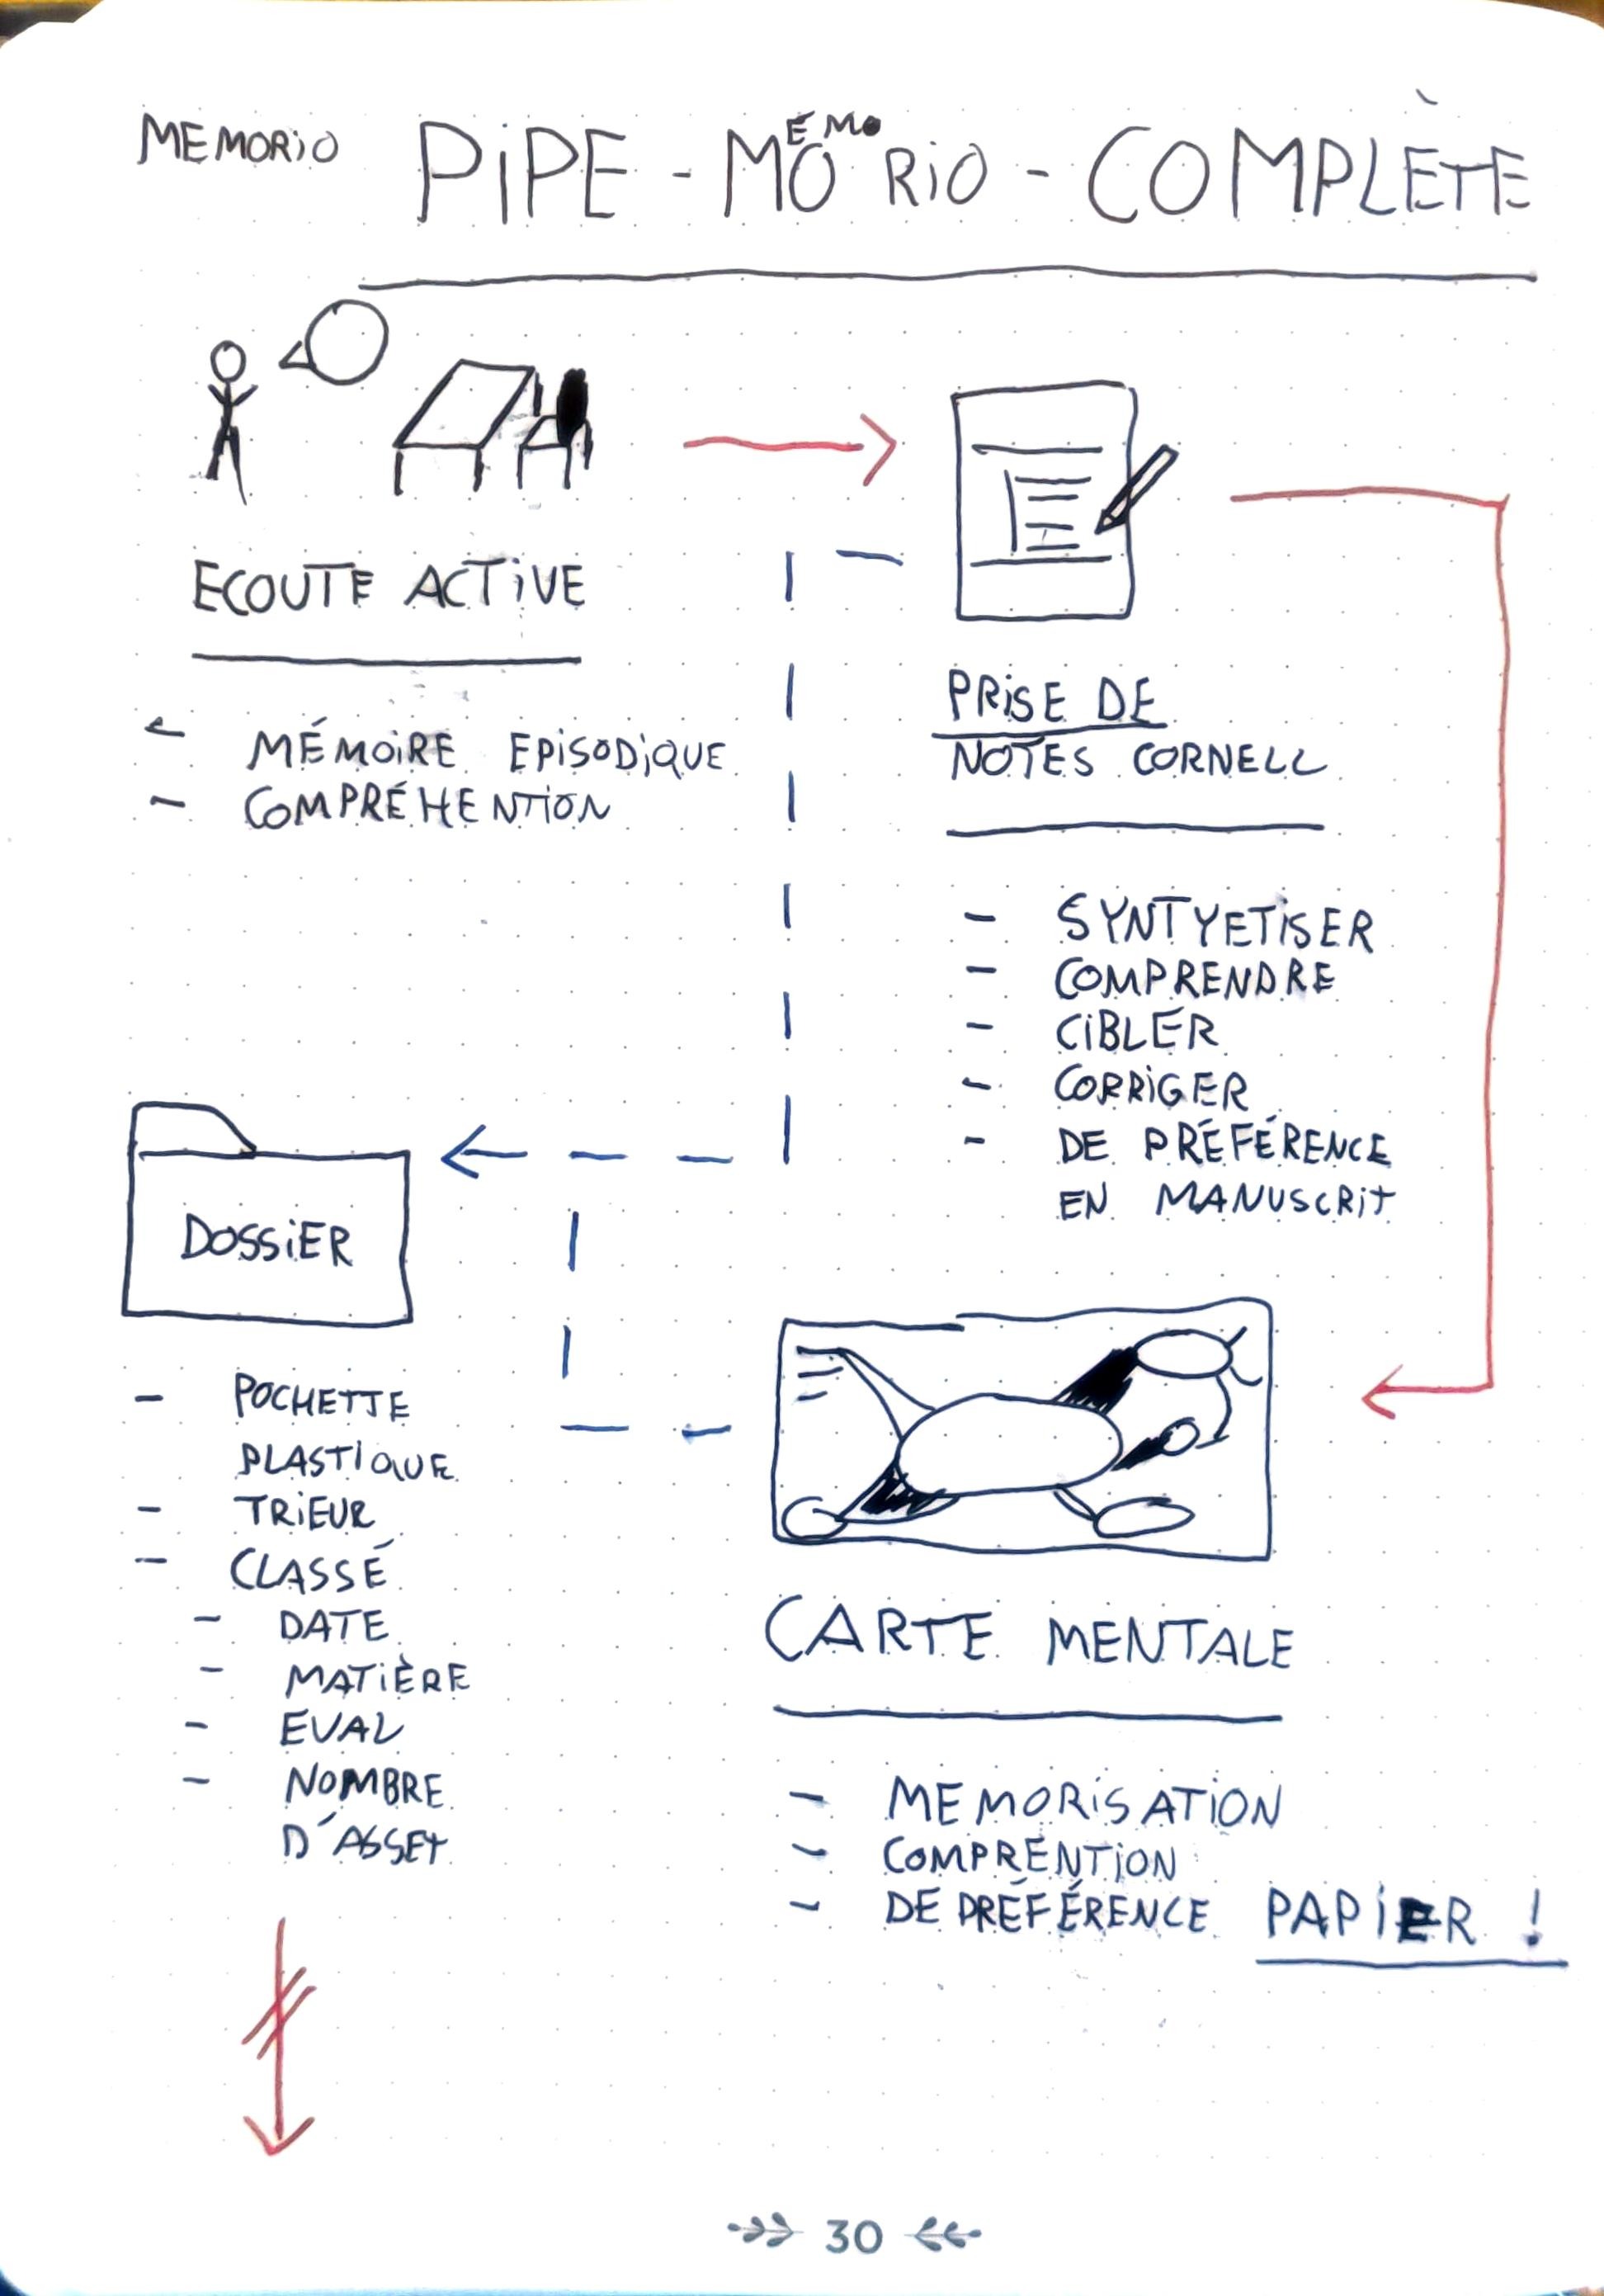 MEMORIO PIPE - MÉMORIO - COMPLÈTE
ECOUTE ACTIVE
- MÉMOIRE EPISODIQUE
- COMPRÉHENTION
PRISE DE
NOTES CORNELL
- SYNTYETISER
- COMPRENDRE
- CIBLER
- CORRIGER
- DE PRÉFÉRENCE
EN MANUSCRIT
DOSSIER
- POCHETTE
PLASTIQUE
- TRIEUR
- CLASSÉ
- DATE
- MATIÈRE
- EVAL
- NOMBRE
D'ASSET
CARTE MENTALE
- MEMORISATION
- COMPRÉNTION
- DE PRÉFÉRENCE PAPIER !
30